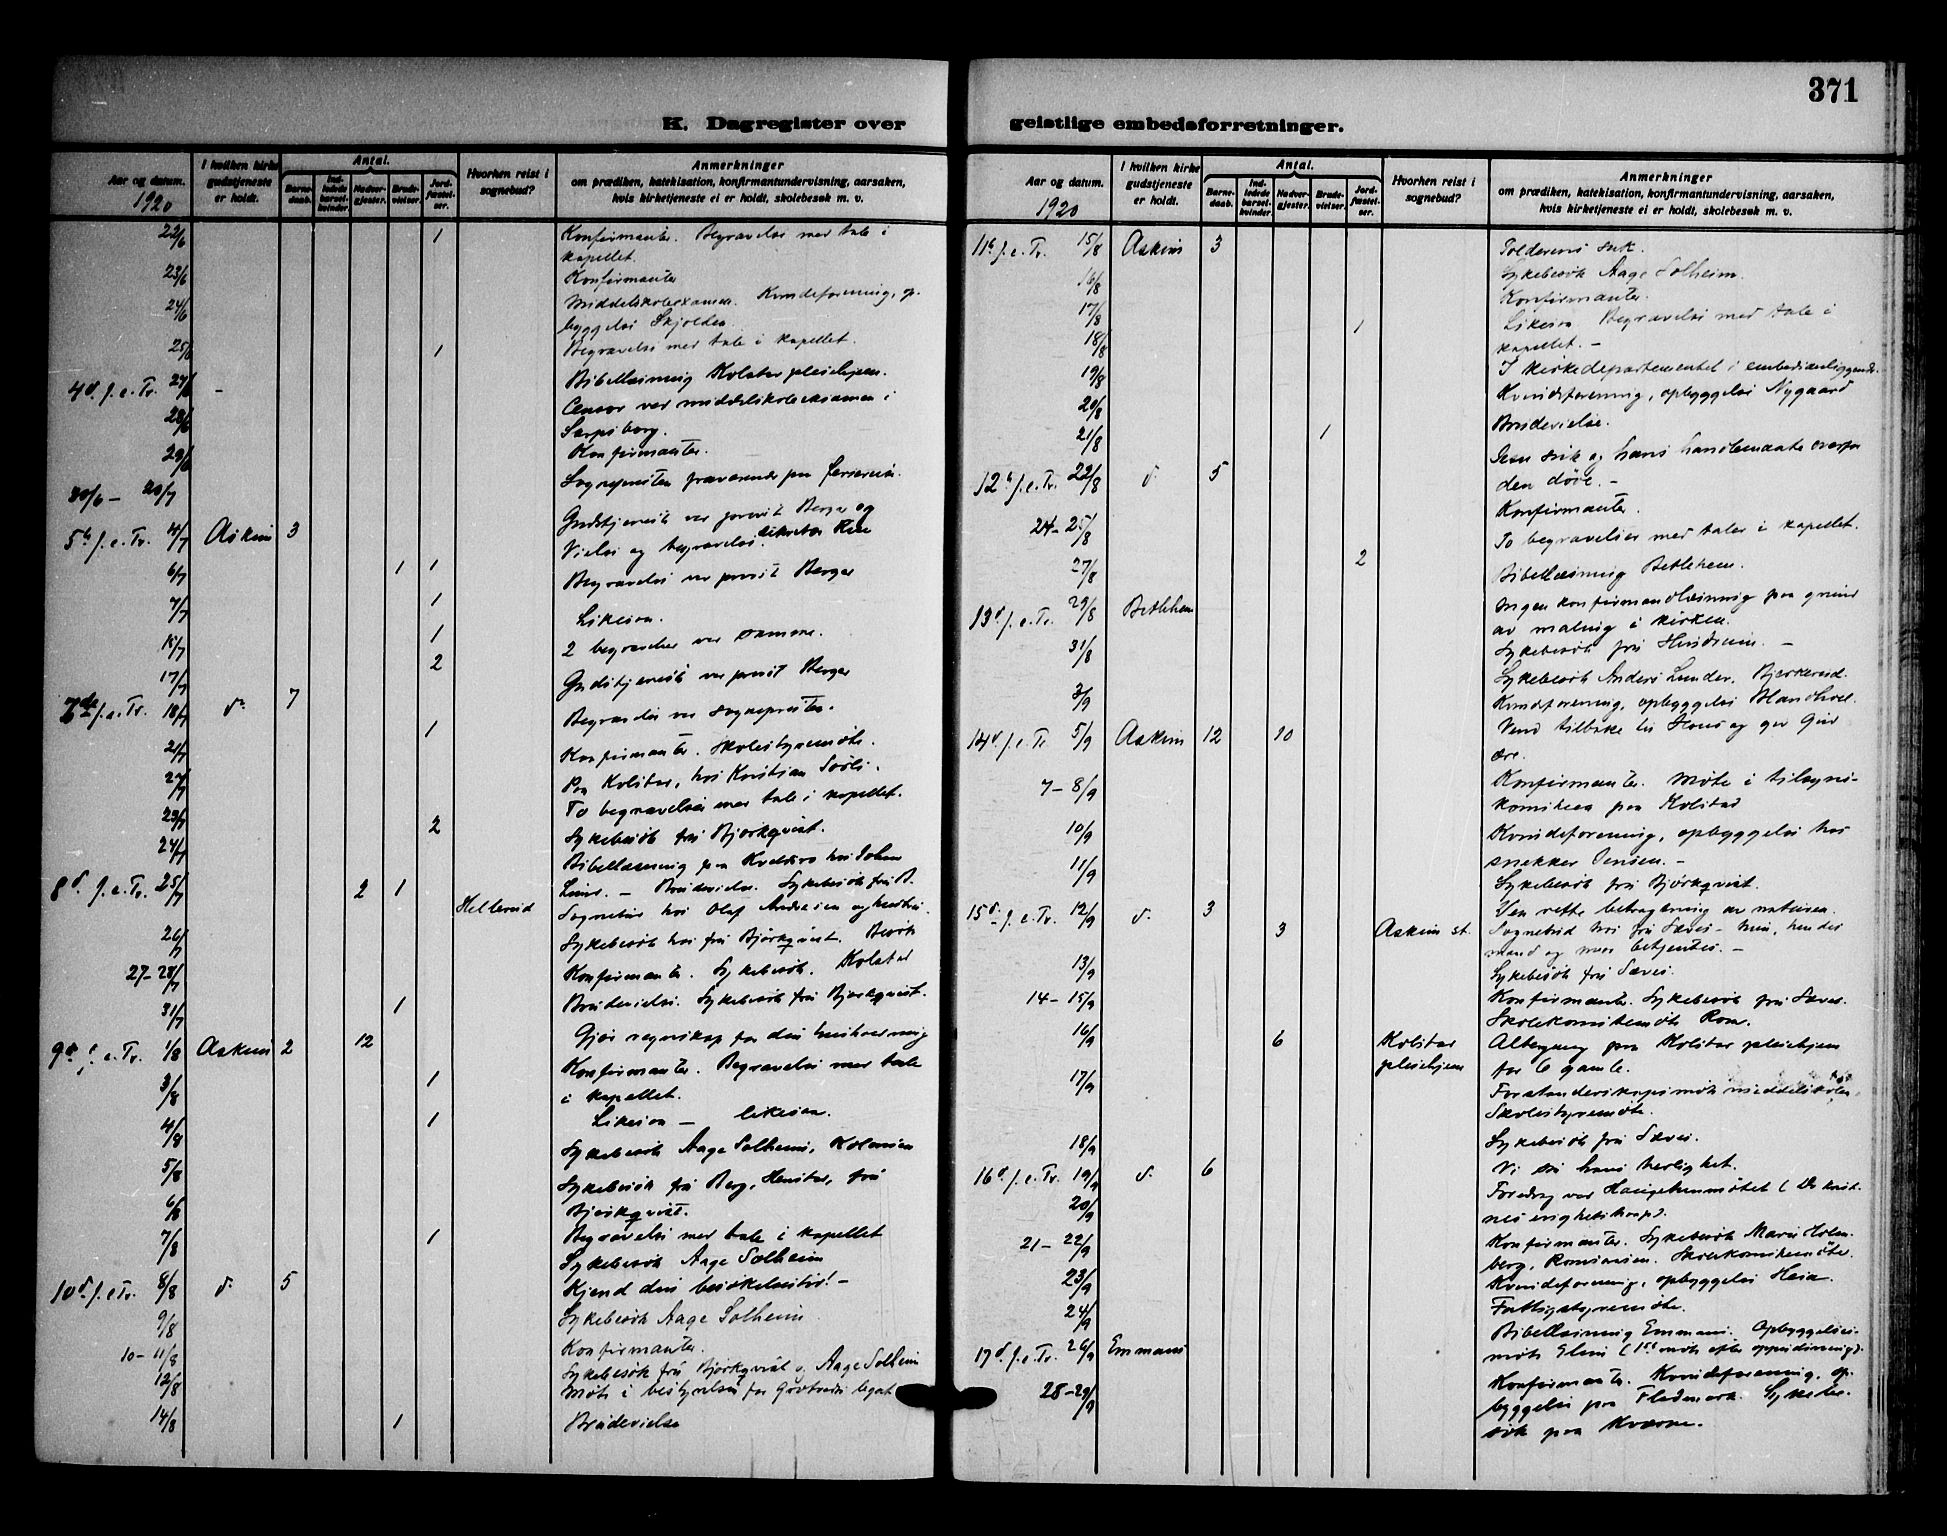 371
K. Dagregister over
geistlige embedsforretninger.
Aar og datum.
1920
I hvilken kirke gudstjeneste er holdt.
Antal.
Barnedaab.
Indledede barselkvinder.
Nadvergjester.
Brudevielser.
Jordfæstelser.
Hvorhen reist i sognebud?
Anmerkninger
om prædiken, katekisation, konfirmantundervisning, aarsaken,
hvis kirketjeneste ei er holdt, skolebesøk m. v.
22/6 1 Konfirmanter. Begravelse med tale i
kapellet.
23/6 Konfirmanter
24/6 Middelskoleexamen. Kvindeforening, op-
byggelse Skjolden
25/6 1 Begravelse med tale i kapellet.
4d. s. e. Tr. 27/6 - Bibellæsning pleiehjem.
28/6 Censor ved middelskoleeksamen i
Sarpsborg.
29/6 Konfirmanter.
30/6 - 20/7 Sognepresten fraværende paa ferie
5h s. e. Tr. 4/7 Askim 3 Gudstjeneste ved provst Berger og
6/7 1 1 Vielse og begravelse
7/7 1 Begravelse ved provst Berger
15/7 1 Likeså.
17/7 2 2 begravelser ved samme.
7de s. e. Tr. 18/7 d. 7 Gudstjeneste ved provst Berger
21/7 1 Begravelse ved sognepresten.
27/7 Konfirmanter. Skolestyremøte.
Paa Kolstad, hos Kristian
23/7 2 To begravelser med tale i kapellet.
24/7 Sykebesøk fru Bjørkqvist.
8d. s. e. Tr. 25/7 2 1 Hellerud Bibellæsning paa hos Johan
Lund. - Brudevielse. Sykebesøk fru B.
Sognebud hos Olaf Andersen og hustru.
26/7 Sykebesøk hos fru Bjørkqvist. Besøk
27-28/7 Konfirmanter. Sykebesøk. Kolstad
31/7 1 Brudevielse. Sykebesøk fru Bjørkqvist.
9d s. e. Tr. 1/8 Askim 2 12 Gjør regnskap for din husholdning
3/8 1 Konfirmanter. Begravelse med tale
i kapellet.
4/8 1 Likeså - likesaa.
5/8 Sykebesøk Aage Solheim,
6/8 Sykebesøk fru Berg, fru
Bjørkqvist.
7/8 1 Begravelse med tale i kapellet
Sykebesøk Aage Solheim
10d. s. e. Tr. 8/8 d. 5 Kjend din besøkelsestid! -
9/8 Sykebesøk Aage Solheim
10-11/8 Konfirmanter.
12/8 Sykebesøk fru Bjørkqvist og Aage Solheim
Møte i bestyrelsen for legat
14/8 1 Brudevielse
Aar og datum.
1920
I hvilken kirke gudstjeneste er holdt.
Antal.
Barnedaab.
Indledede barselkvinder.
Nadvergjester.
Brudevielser.
Jordfæstelser.
Hvorhen reist i sognebud?
Anmerkninger
om prædiken, katekisation, konfirmantundervisning, aarsaken,
hvis kirketjeneste ei er holdt, skolebesøk m. v.
11h s. e. Tr. 15/8 Askim 3 Tolderens suk.
16/8 Sykebesøk Aage Solheim.
17/8 Konfirmanter.
18/8 1 Likesaa Begravelse med tale i
kapellet. -
19/8 I kirkedepartementet i embedsanliggende.
20/8 Kvindeforening, opbyggelse Nygaard
21/8 1 Brudevielse.
12h s. e. Tr. 22/8 d. 5 og hans handlemaate overfor
den døve. -
24-25/8 Konfirmanter.
27/8 2 To begravelser med taler i kapellet.
13d s. e. Tr. 29/8 Betlehem Bibellæsning Betlehem.
31/8 Ingen konfirmandlæsning paa grund
av maling i kirken.
Sykebesøk fru
3/9 Sykebesøk Anders Lunder, Bjerkerud.
Kvindeforening, opbyggelse
14d. s. e. Tr 5/9 Askim 12 10 Vend tilbake til Hans og gav Gud
ære.
7-8/9 Konfirmanter. Møte i tilsyns-
komiteen paa Kolstad
10/9 Kvindeforening, opbyggelse hos
snekker Jensen. -
11/9 Sykebesøk fru Bjørkqvist.
15d. s. e. Tr. 12/9 d. 3 3 Askim st. Den rette betragtning av naturen.
Sognebud hos fru Sæves - hun, hendes
mand og mor betjentes. -
13/9 Sykebesøk fru Sæves.
14-15/9 Konfirmanter. Sykebesøk fru Sæves.
Skolekomitemøte Rom.
16/9 6 Kolstad
pleiehjem Altergang paa Kolstad pleiehjem
for 6 gamle.
17/9 Forstanderskapsmøte middelskolen.
Skolestyremøte.
18/9 Sykebesøk fru Sæves.
16d. s. e. Tr. 19/9 d. 6 Vi så hans herlighet.
20/9 Foredrag ved Haugetunmøtet (De krist-
nes enighetskrap).
21-22/9 Konfirmanter. Sykebesøk Marie Holm-
berg, Romsaasen. Skolekomitemøte.
23/9 Kvindeforening, opbyggelse Heia.
24/9 Fattigstyremøte.
17d. s. e. Tr. 26/9 Emmaus Bibellæsning Emmaus. Opbyggelses-
møte Elim (1ste møte efter oppudsning).
28-29/9 Konfirmanter. Kvindeforening, op-
byggelse paa Fladmark. Sykebe-
søk paa Kværne.